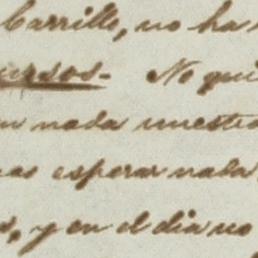 Carrillo, no ha
ursos. No qui
n nada nuestra
as esperar nada
s, y en el dia no